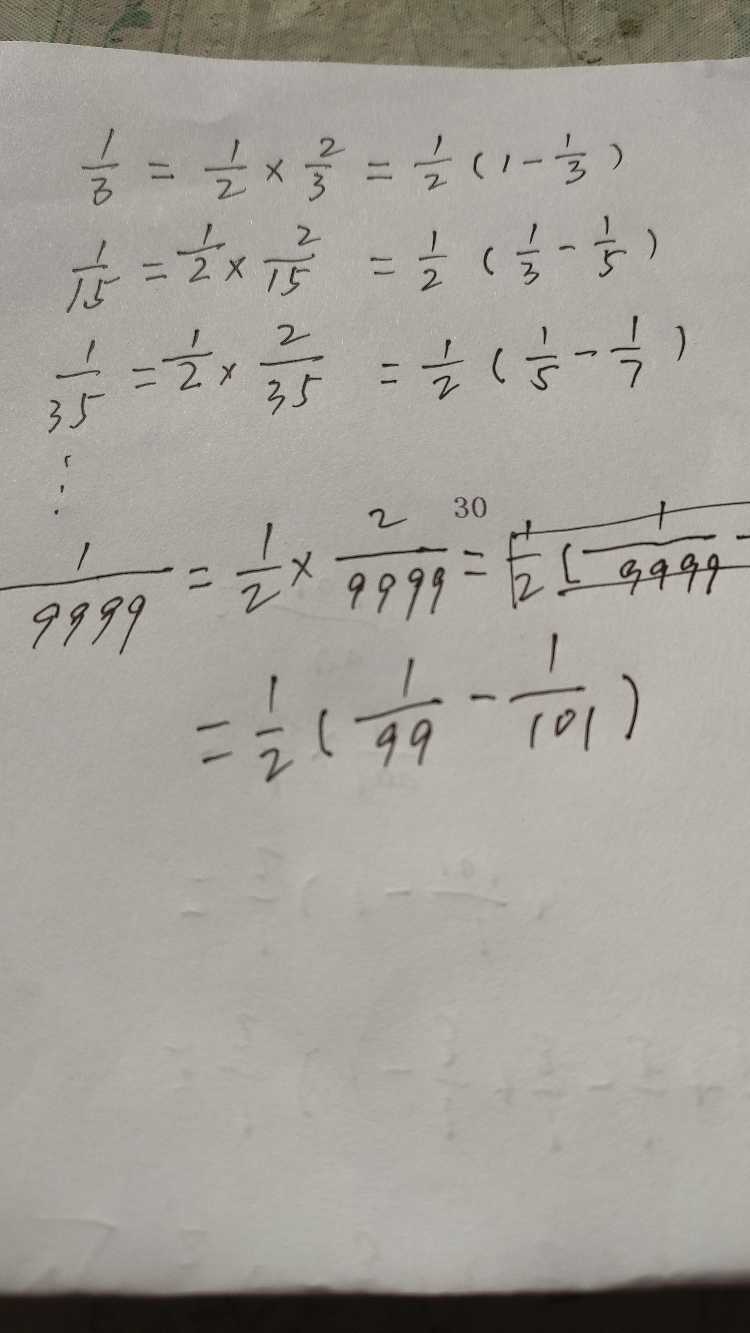 1/3 = 1/2 × 2/3 = 1/2 (1 - 1/3)
1/15 = 1/2 × 2/15 = 1/2 (1/3 - 1/5)
1/35 = 1/2 × 2/35 = 1/2 (1/5 - 1/7)
⋮
30
1/9999 = 1/2 × 2/9999 = 1/2 [1/9999 -
= 1/2 (1/99 - 1/101)